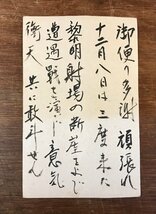 御便り多謝 頑張れ
十二月八日は二度来た
黎明射場の断崖をよじ
遭遇戦を演ず 意気
衝天 共に敢斗せん